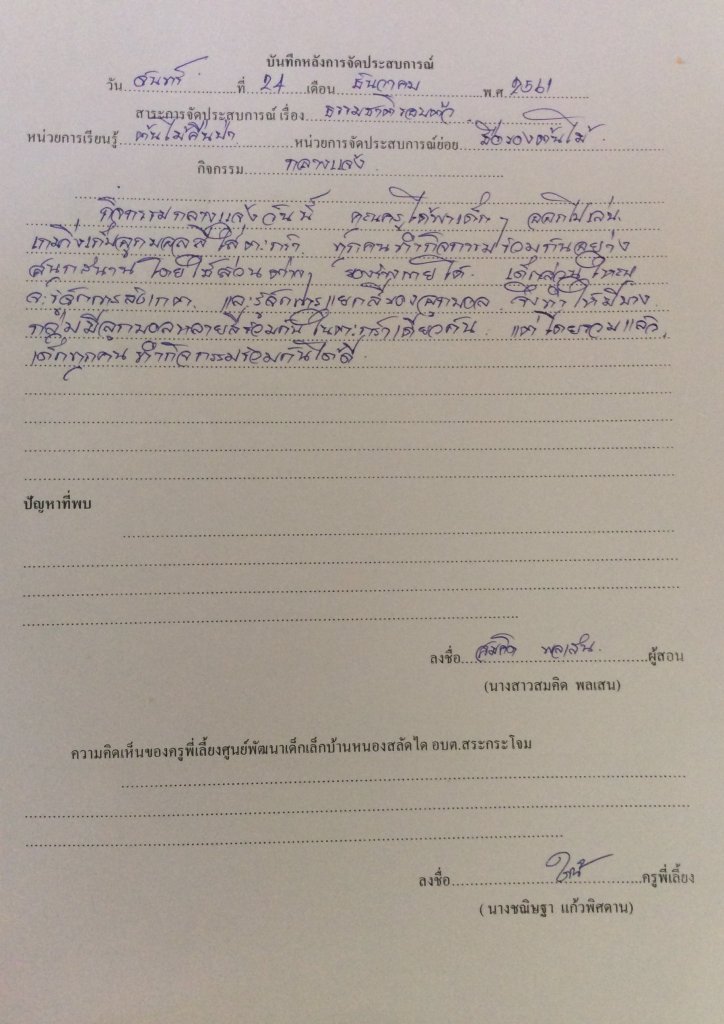 บันทึกหลังการจัดประสบการณ์
วัน จันทร์ ที่ 24 เดือน ธันวาคม พ.ศ. 2561
สาระการจัดประสบการณ์ เรื่อง ธรรมชาติรอบตัว
หน่วยการเรียนรู้ ต้นไม้คืนป่า หน่วยการจัดประสบการณ์ย่อย ชื่อของต้นไม้
กิจกรรม กลางแจ้ง
กิจกรรมกลางแจ้งวันนี้ คุณครูได้พาเด็กๆ ออกไปเล่น
เกมวิ่งเก็บลูกบอลสีใส่ตะกร้า ทุกคนทำกิจกรรมร่วมกันอย่าง
สนุกสนาน โดยใช้ส่วนต่างๆ ของร่างกายได้ เด็กส่วนใหญ่
จะรู้จักการสังเกต และรู้จักการแยกสีของลูกบอล จึงทำให้มีบาง
กลุ่มมีลูกบอลหลายสีรวมกันในตะกร้าเดียวกัน แต่โดยรวมแล้ว
เด็กทุกคนทำกิจกรรมร่วมกันได้ดี
ปัญหาที่พบ
ลงชื่อ สมคิด พลเสน ผู้สอน
(นางสาวสมคิด พลเสน)
ความคิดเห็นของครูพี่เลี้ยงศูนย์พัฒนาเด็กเล็กบ้านหนองสลัดได อบต.สระกระโจม
ลงชื่อ ครูพี่เลี้ยง
( นางชณิษฐา แก้วพิศดาน)